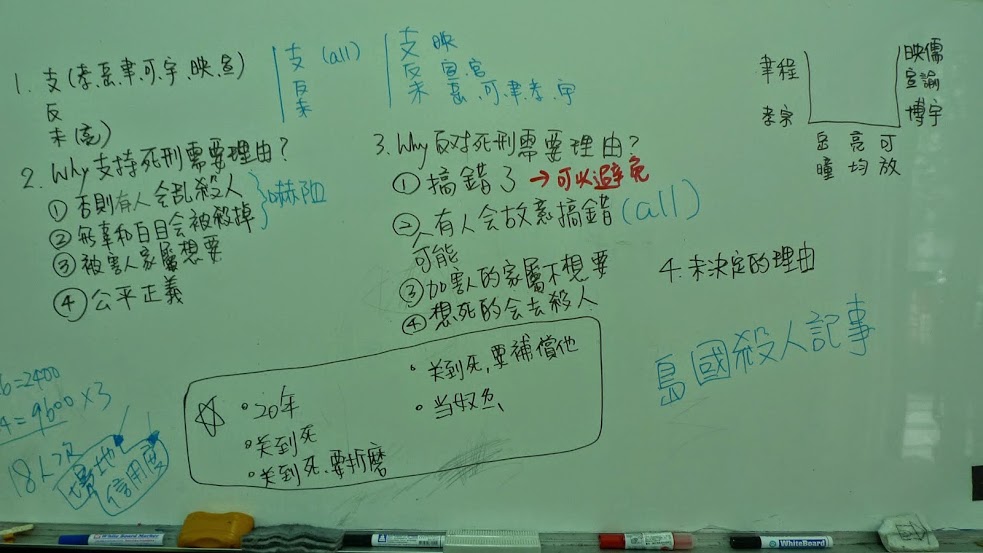 1. 支(孝.岳.聿.可.宇.映.宣)
反
未(亮)
支 (all)
反
未
支 映
反 宣.宮
未 岳.可.聿.孝.宇
2. Why 支持死刑需要理由?
① 否則有人会乱殺人
② 無辜和白目会被殺掉
嚇阻
③ 被害人家屬想要
④ 公平正義
3. Why 反対死刑需要理由?
① 搞錯了 →可以避免
② 有人会故意搞錯(all)
可能
③ 加害人的家屬不想要
④ 想死的会去殺人
4. 未決定的理由
聿程
孝宗
岳瞳
亮均
可放
映儒
宣諭
博宇
島國殺人記事
•20年
•关到死
•关到死.要折磨
•关到死,要補償他
•当奴
6=2400
4=9600×3
18人次
場地
信用度
White Board Marker
WhiteBoard